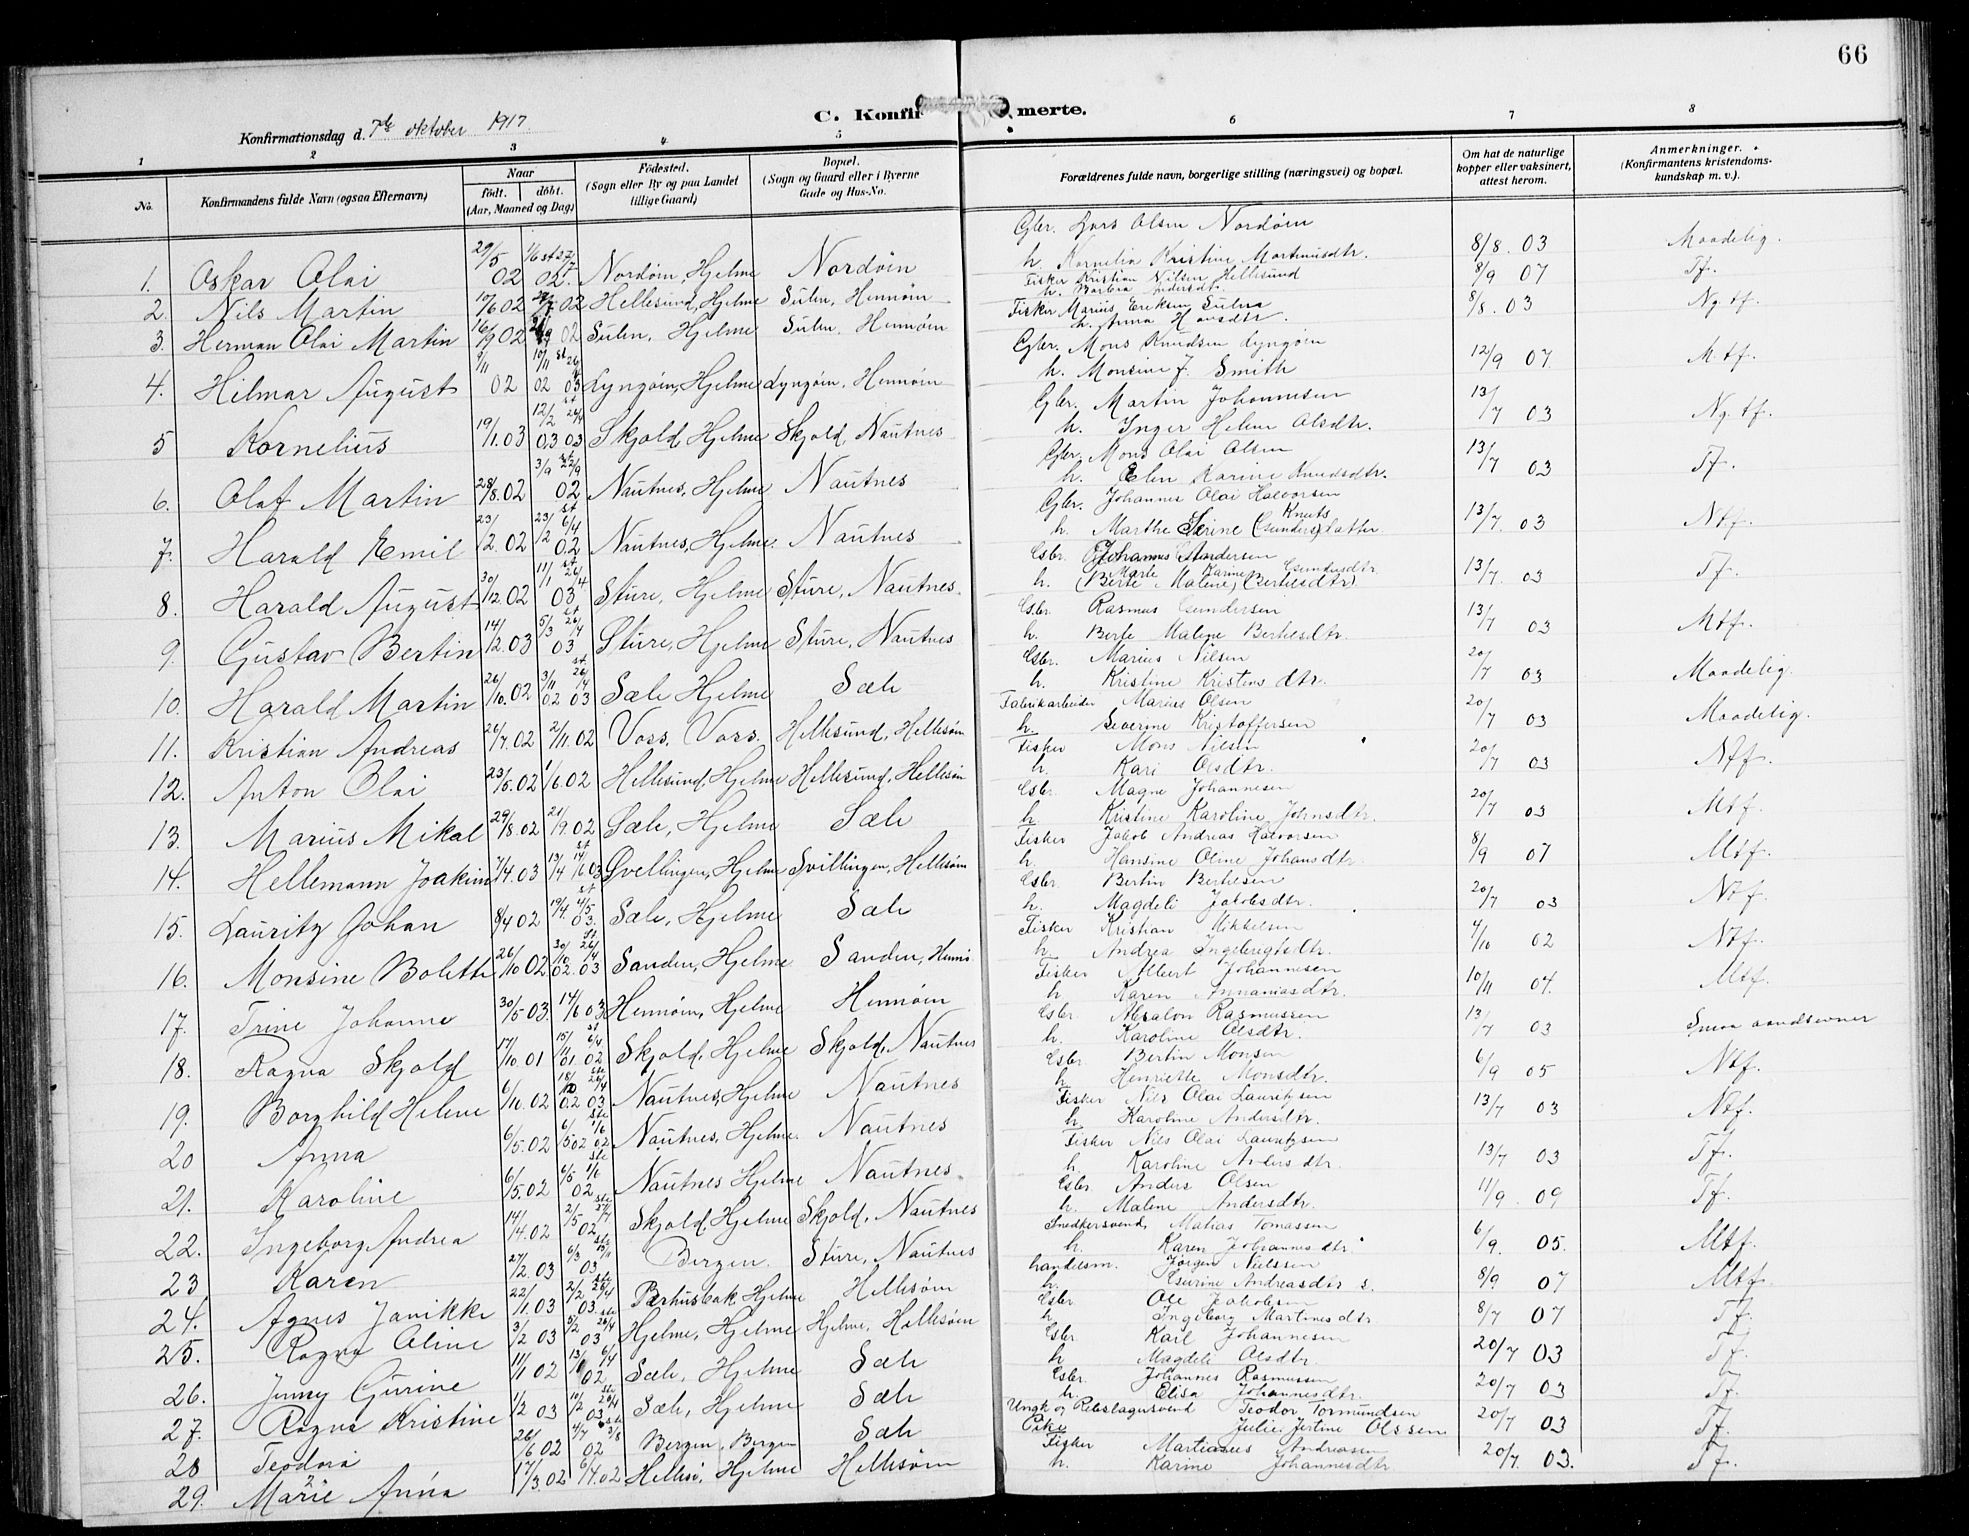 66
C. Konfirmerte.
Konfirmationsdag d. 7de oktober 1917
1 2 3 4 5 6 7 8
No.
Konfirmandens fulde Navn (ogsaa Efternavn)
Naar
født. døbt.
(Aar, Maaned og Dag)
Fødested.
(Sogn eller By og paa Landet
tillige Gaard)
Bopæl.
(Sogn og Gaard eller i Byerne
Gade og Hus-No.
Forældrenes fulde navn, borgerlige stilling (næringsvei) og bopæl.
Om hat de naturlige
kopper eller vaksinert,
attest herom.
Anmerkninger.
(Konfirmantens kristendoms-
kundskap m. v.).
1. Oskar Olai 29/5 02 Nordøin, Hjelme Nordøin Gbr. Lars Olsen Nordøin 8/8. 03 Maadelig.
h. Kornelia Kristine Martinusdtr.
2. Nils Martin 10/6 02 Hellesund, Hjelme Sulen, Hennøin Fisker Kristian Nilsen Hellesund 8/9 07 Tf.
h. Barbra Andersdtr.
3. Herman Olai Martin 16/9 02 Sulen, Hjelme Sulen, Hennøin Fisker Marius Eriksen Sulen 8/8. 03 Ng. tf.
h. Anna Hansdtr.
4. Hilmar August 9/11 02 Lyngøin, Hjelme Lyngøin, Hennøin Gbr. Mons Knudsen Lyngøin 12/9 07 M.tf.
h. Monsine J. Smith
5 Kornelius 19/1. 03 12/2 03 Skjold, Hjelme Skjold, Nautnes Gbr. Martin Johannesen 13/7 03 Ng. tf.
h. Inger Helene Olsdtr.
6. Olaf Martin 28/8. 02 3/9 02 Nautnes, Hjelme Nautnes Gbr. Mons Olai Olsen 13/7 03 Tf.
h. Elen Karine Knudsdtr.
7. Harald Emil 23/2. 02 Nautnes, Hjelme. Nautnes Gbr. Johannes Olai Halvorsen 13/7. 03 Ntf.
h. Marthe Serine Knuts (Gunders) datter
8. Harald August 30/12. 02 11/1 26/4 03 Sture, Hjelme Sture, Nautnes. Gbr. Johannes Andersen 13/7. 03 Tf.
h. Marte Karine Gundersdtr (Berte Malene Bertesdtr)
9. Gustav Bertin 14/2. 03 5/3 26/4 03 Sture, Hjelme Sture, Nautnes Gbr. Rasmus Gundersen 13/7 03 Mtf.
h. Berte Malene Bertesdtr.
10. Harald Martin 26/10. 02 3/11 02 26/4 03 Sæle Hjelme Sæle Gbr. Marius Nilsen 20/7 03 Maadelig.
h. Kristine Kristensdtr.
11. Kristian Andreas 26/7. 02 2/11. 02 Voss, Voss. Hellesund, Hellesøin Fabrikarbeider Marius Olsen 20/7 03 Maadelig.
h. Severine Kristoffersen
12. Anton Olai 23/5. 02 1/6. 02 Hellesund, Hjelme Hellesund, Hellesøin Fisker Mons Nilsen 20/7 03 Ntf.
h. Kari Olsdtr.
13. Marius Mikal 29/8. 02 21/9. 02 Sæle, Hjelme Sæle Gbr. Magne Johannesen 20/7 03 Mtf.
h Kristine Karoline Johnsdtr.
14. Hellemann Joakim 7/4. 03 13/4 14/6 03 Svellingen, Hjelme Svillingen, Hellesøin Fisker Jakob Andreas Halvorsen 8/9 07 Mtf.
h. Hansine Oline Johansdtr.
15. Lauritz Johan 8/4 02 Sæle, Hjelme Sæle Gbr. Bertin Bertesen 20/7 03 Ntf.
h. Magdeli Jakobsdtr.
16. Monsine Bolette 26/10 02 30/10 02. 26/4 03 Sanden, Hjelme Sanden, Hennø. Fisker Kristian Mikkelsen 4/10 02 Ntf.
h. Andrea Ingebrigtsdtr.
17. Trine Johanne 30/5 03. 14/6 03 Hennøin, Hjelme Hennøin Fisker Albert Johannesen 10/11 04. Mtf.
h. Karen Annaniasdtr.
18. Ragna Skjold 17/10 01 Skjold, Hjelme Skjold, Nautnes Gbr. Absalon Rasmussen 13/7 03 Smaa aandsevner
h. Karoline Olsdtr.
19. Borghild Helene 6/10. 02 Nautnes, Hjelme Nautnes Gbr. Bertin Monsen 6/9 05 Ntf.
h Henriette Monsdtr.
20 Anna 6/5. 02 Nautnes, Hjelme. Nautnes Fisker Nils Olai Lauritzsen 13/7 03 Ntf.
h Karoline Andersdtr.
21. Karoline 6/5. 02 6/5 1/6 02 Nautnes Hjelme Nautnes. Fisker Nils Olai Lauritzsen 13/7 03 Tf.
h. Karoline Andersdtr.
22. Ingeborg Andrea 14/4. 02 Skjold, Hjelme Skjold, Nautnes Gbr Anders Olsen 11/9. 09 Tf.
h. Malene Andersdtr.
23 Karen 27/2. 03 Bergen. Sture, Nautnes Snedkersvend, Matias Tomassen 6/9. 05. Mtf.
h. Karen Johannesdtr.
24. Agnes Janikke 22/1. 03 Hjelme Hellesøin handelsm. Jørgen Nielssen 8/9 07 Mtf.
h. Gurine Andreasdtr s.
25. Ragna Oline 3/2 03 5/2 26/4 03 Hjelme, Hjelme Hjelme, Hellesøin Gbr Ole Jakobsen 8/7 07 Tf.
h Ingeborg Martinesdtr
26. Jenny Gurine 11/1 02 Sæle, Hjelme Sæle Gbr Karl Johannesen 20/7 03 Tf.
h Magdeli Olsdtr.
27. Ragna Kristine 1/2 03 Sæle, Hjelme Sæle Gbr. Johannes Rasmussen 20/7 03 Tf.
h. Elisa Johannesdtr.
28 Teodora 26/6 02 4/7 3/8 02 Bergen, Bergen Sæle Ungk. og Rebslagersvend Teodor Tormundsen 20/7 03 Tf.
Pike Julie Jertine Olssen
29. Marie Anna 17/3. 02 6/4. 02 Hellesø, Hjelme Hellesøin Fisker Martianus Andreasen 20/7. 03. Tf.
h. Karine Johannesdtr